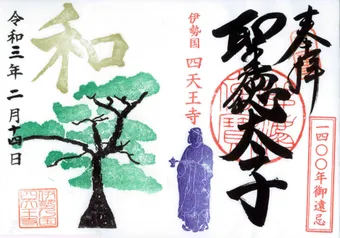 奉拝
一四〇〇年御遠忌
聖徳太子
伊勢国 四天王寺
和
令和三年 二月十四日